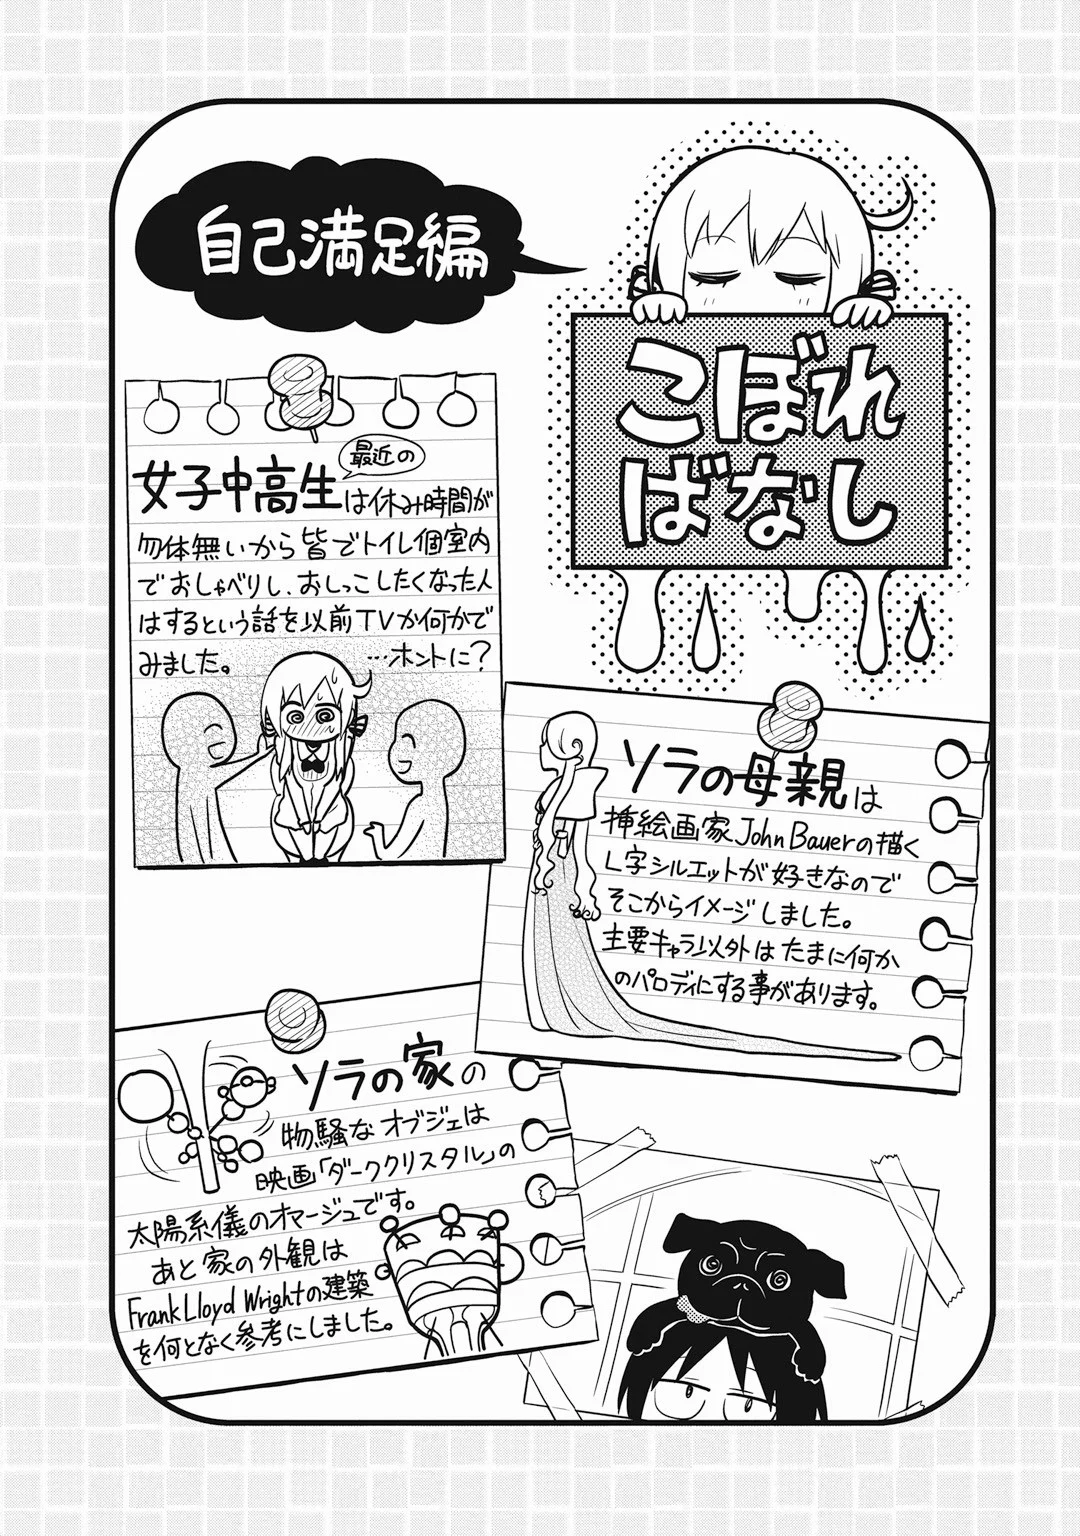 自己満足編
こぼれ
ばなし
最近の
女子中高生は休み時間が
勿体無いから皆でトイレ個室内
でおしゃべりし、おしっこしたくなった人
はするという話を以前TVか何かで
みました。
…ホントに?
ソラの母親は
挿絵画家John Bauerの描く
L字シルエットが好きなので
そこからイメージしました。
主要キャラ以外はたまに何か
のパロディにする事があります。
ソラの家の
物騒なオブジェは
映画「ダーククリスタル」の
太陽系儀のオマージュです。
あと家の外観は
Frank Lloyd Wrightの建築
を何となく参考にしました。